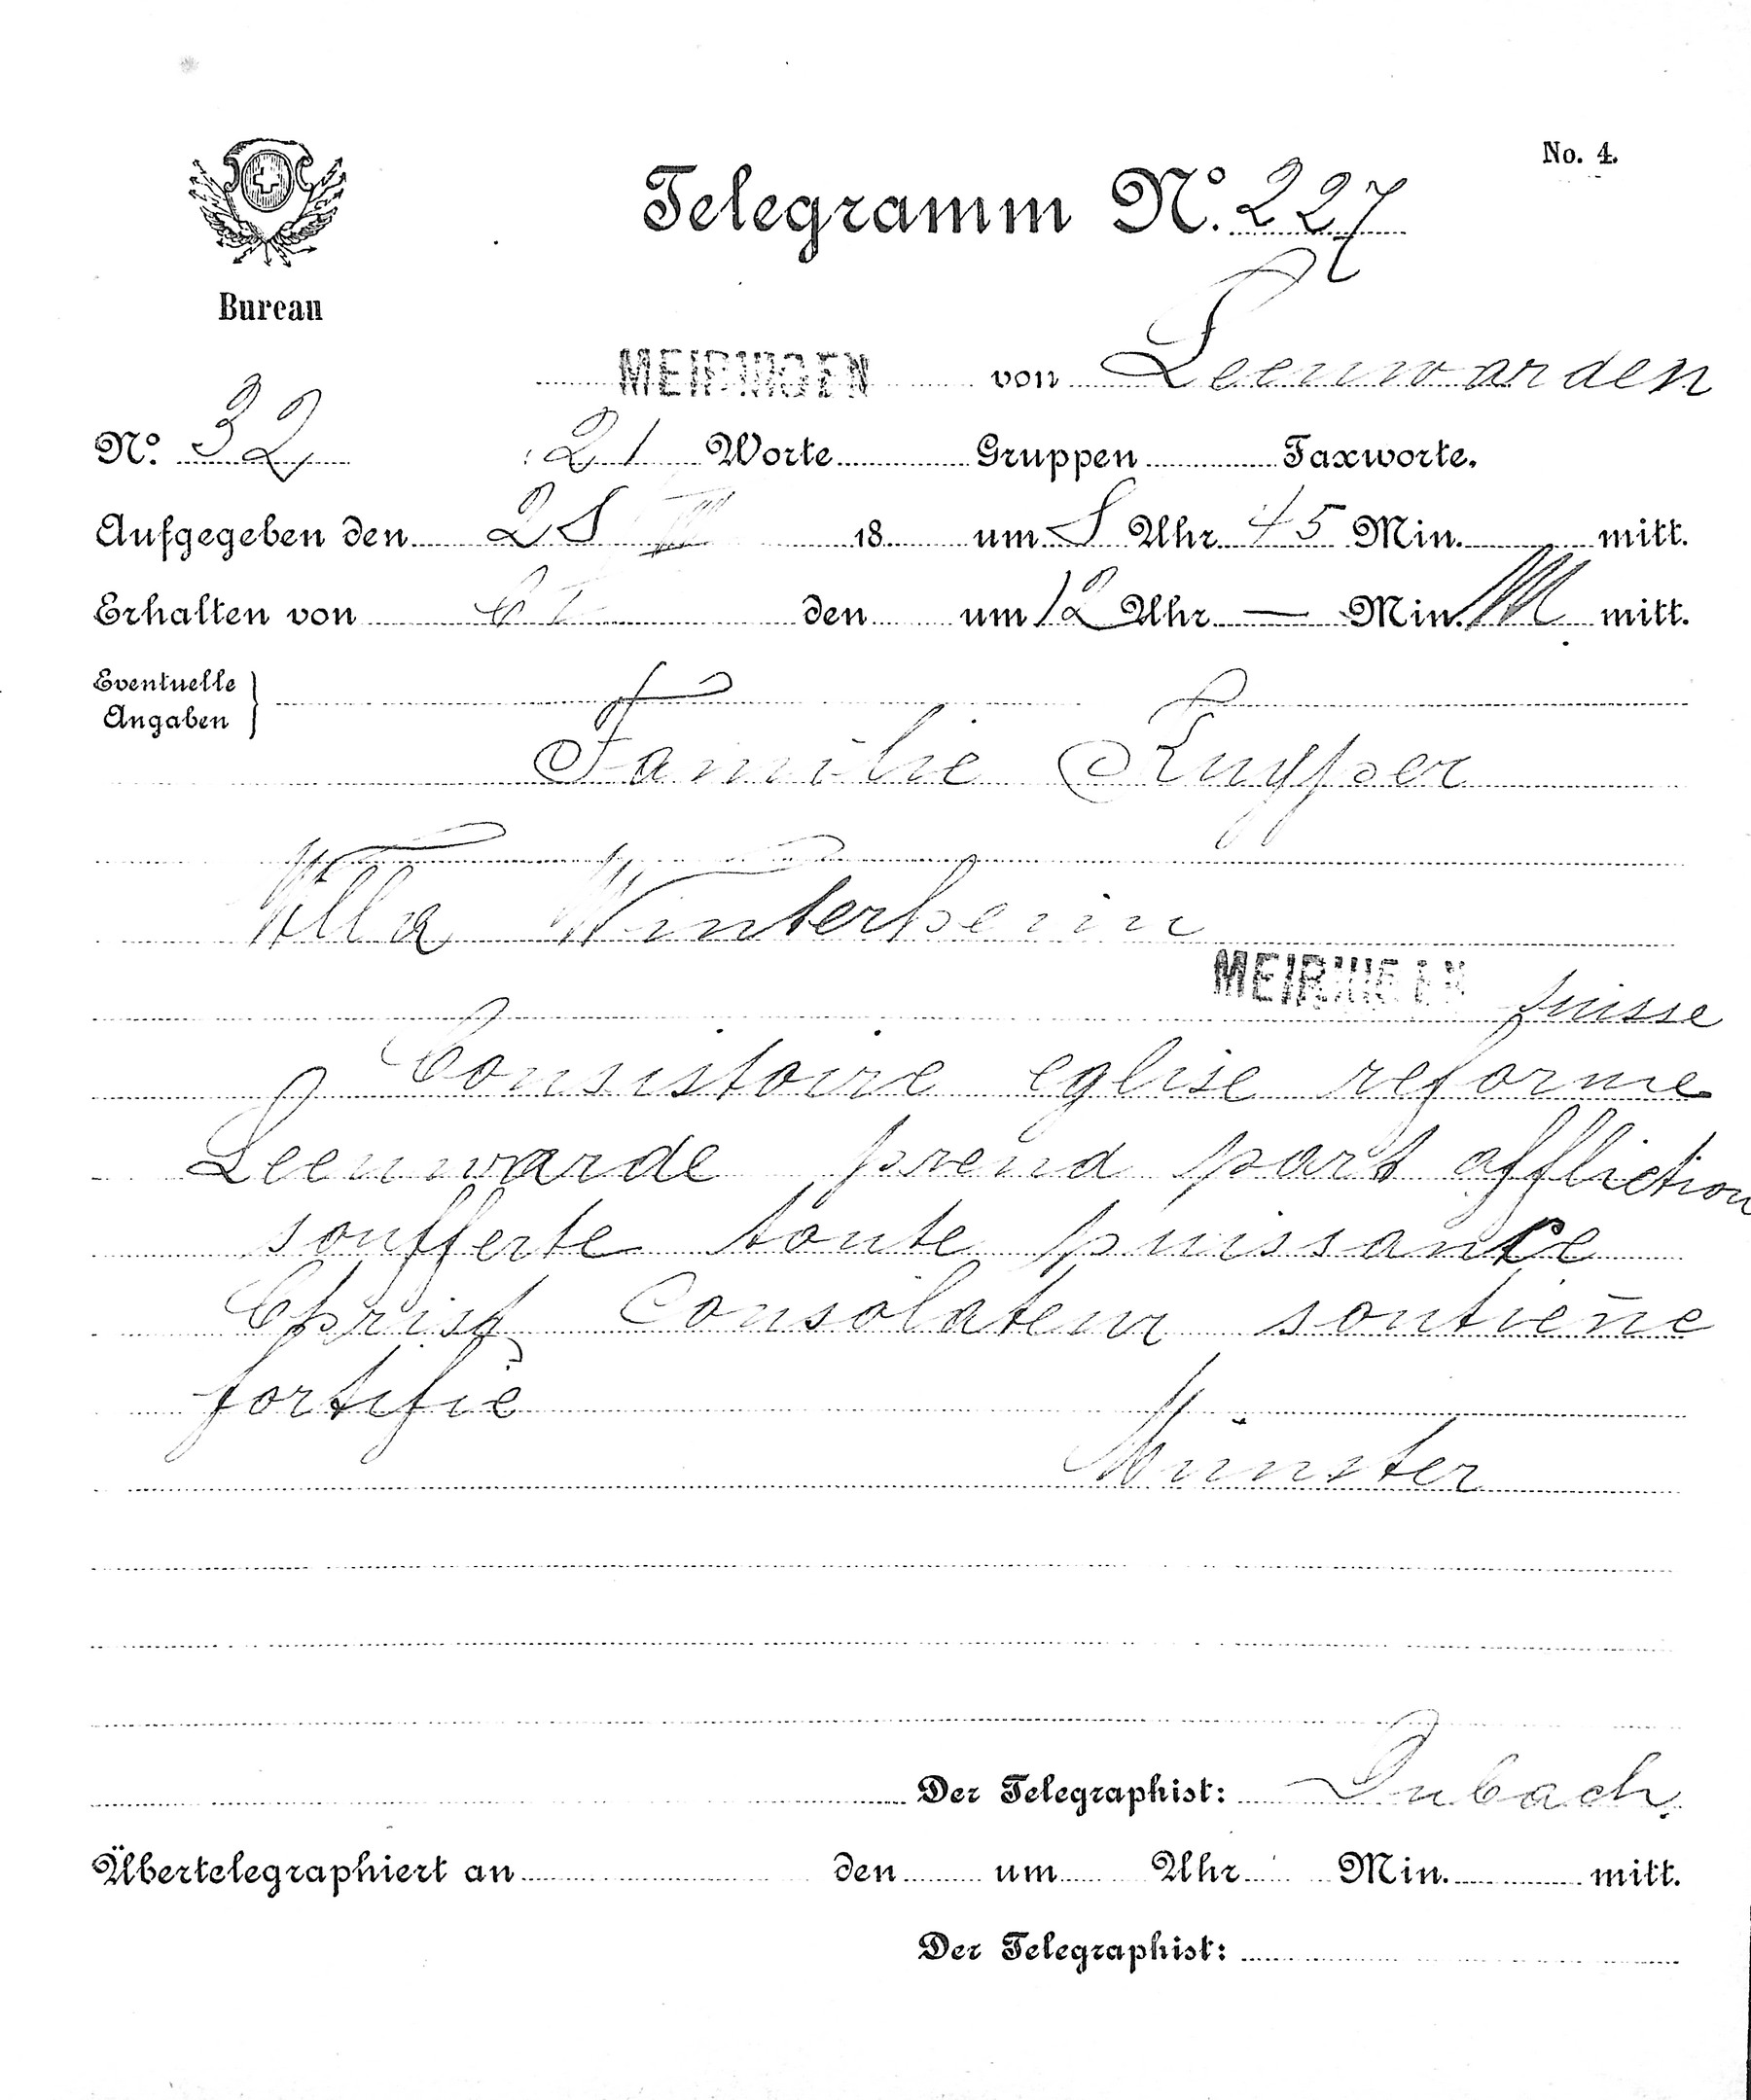 No. 4.
Telegramm No. 227
Bureau
MEIRINGEN von Leeuwarden
No. 32 21 Worte Gruppen Taxworte.
Aufgegeben den 28 18 um 8 Uhr 45 Min. mitt.
Erhalten von den um 12 Uhr — Min. M mitt.
Eventuelle
Angaben
Familie Kuyper
Villa Winterheim
MEIRINGEN suisse
Consistoire eglise reforme
Leenwarde prend part affliction
soufferte toute puissance
Christ Consolateur soutiene
fortifie
Münster
Der Telegraphist: Dubach
Übertelegraphiert an den um Uhr Min. mitt.
Der Telegraphist: